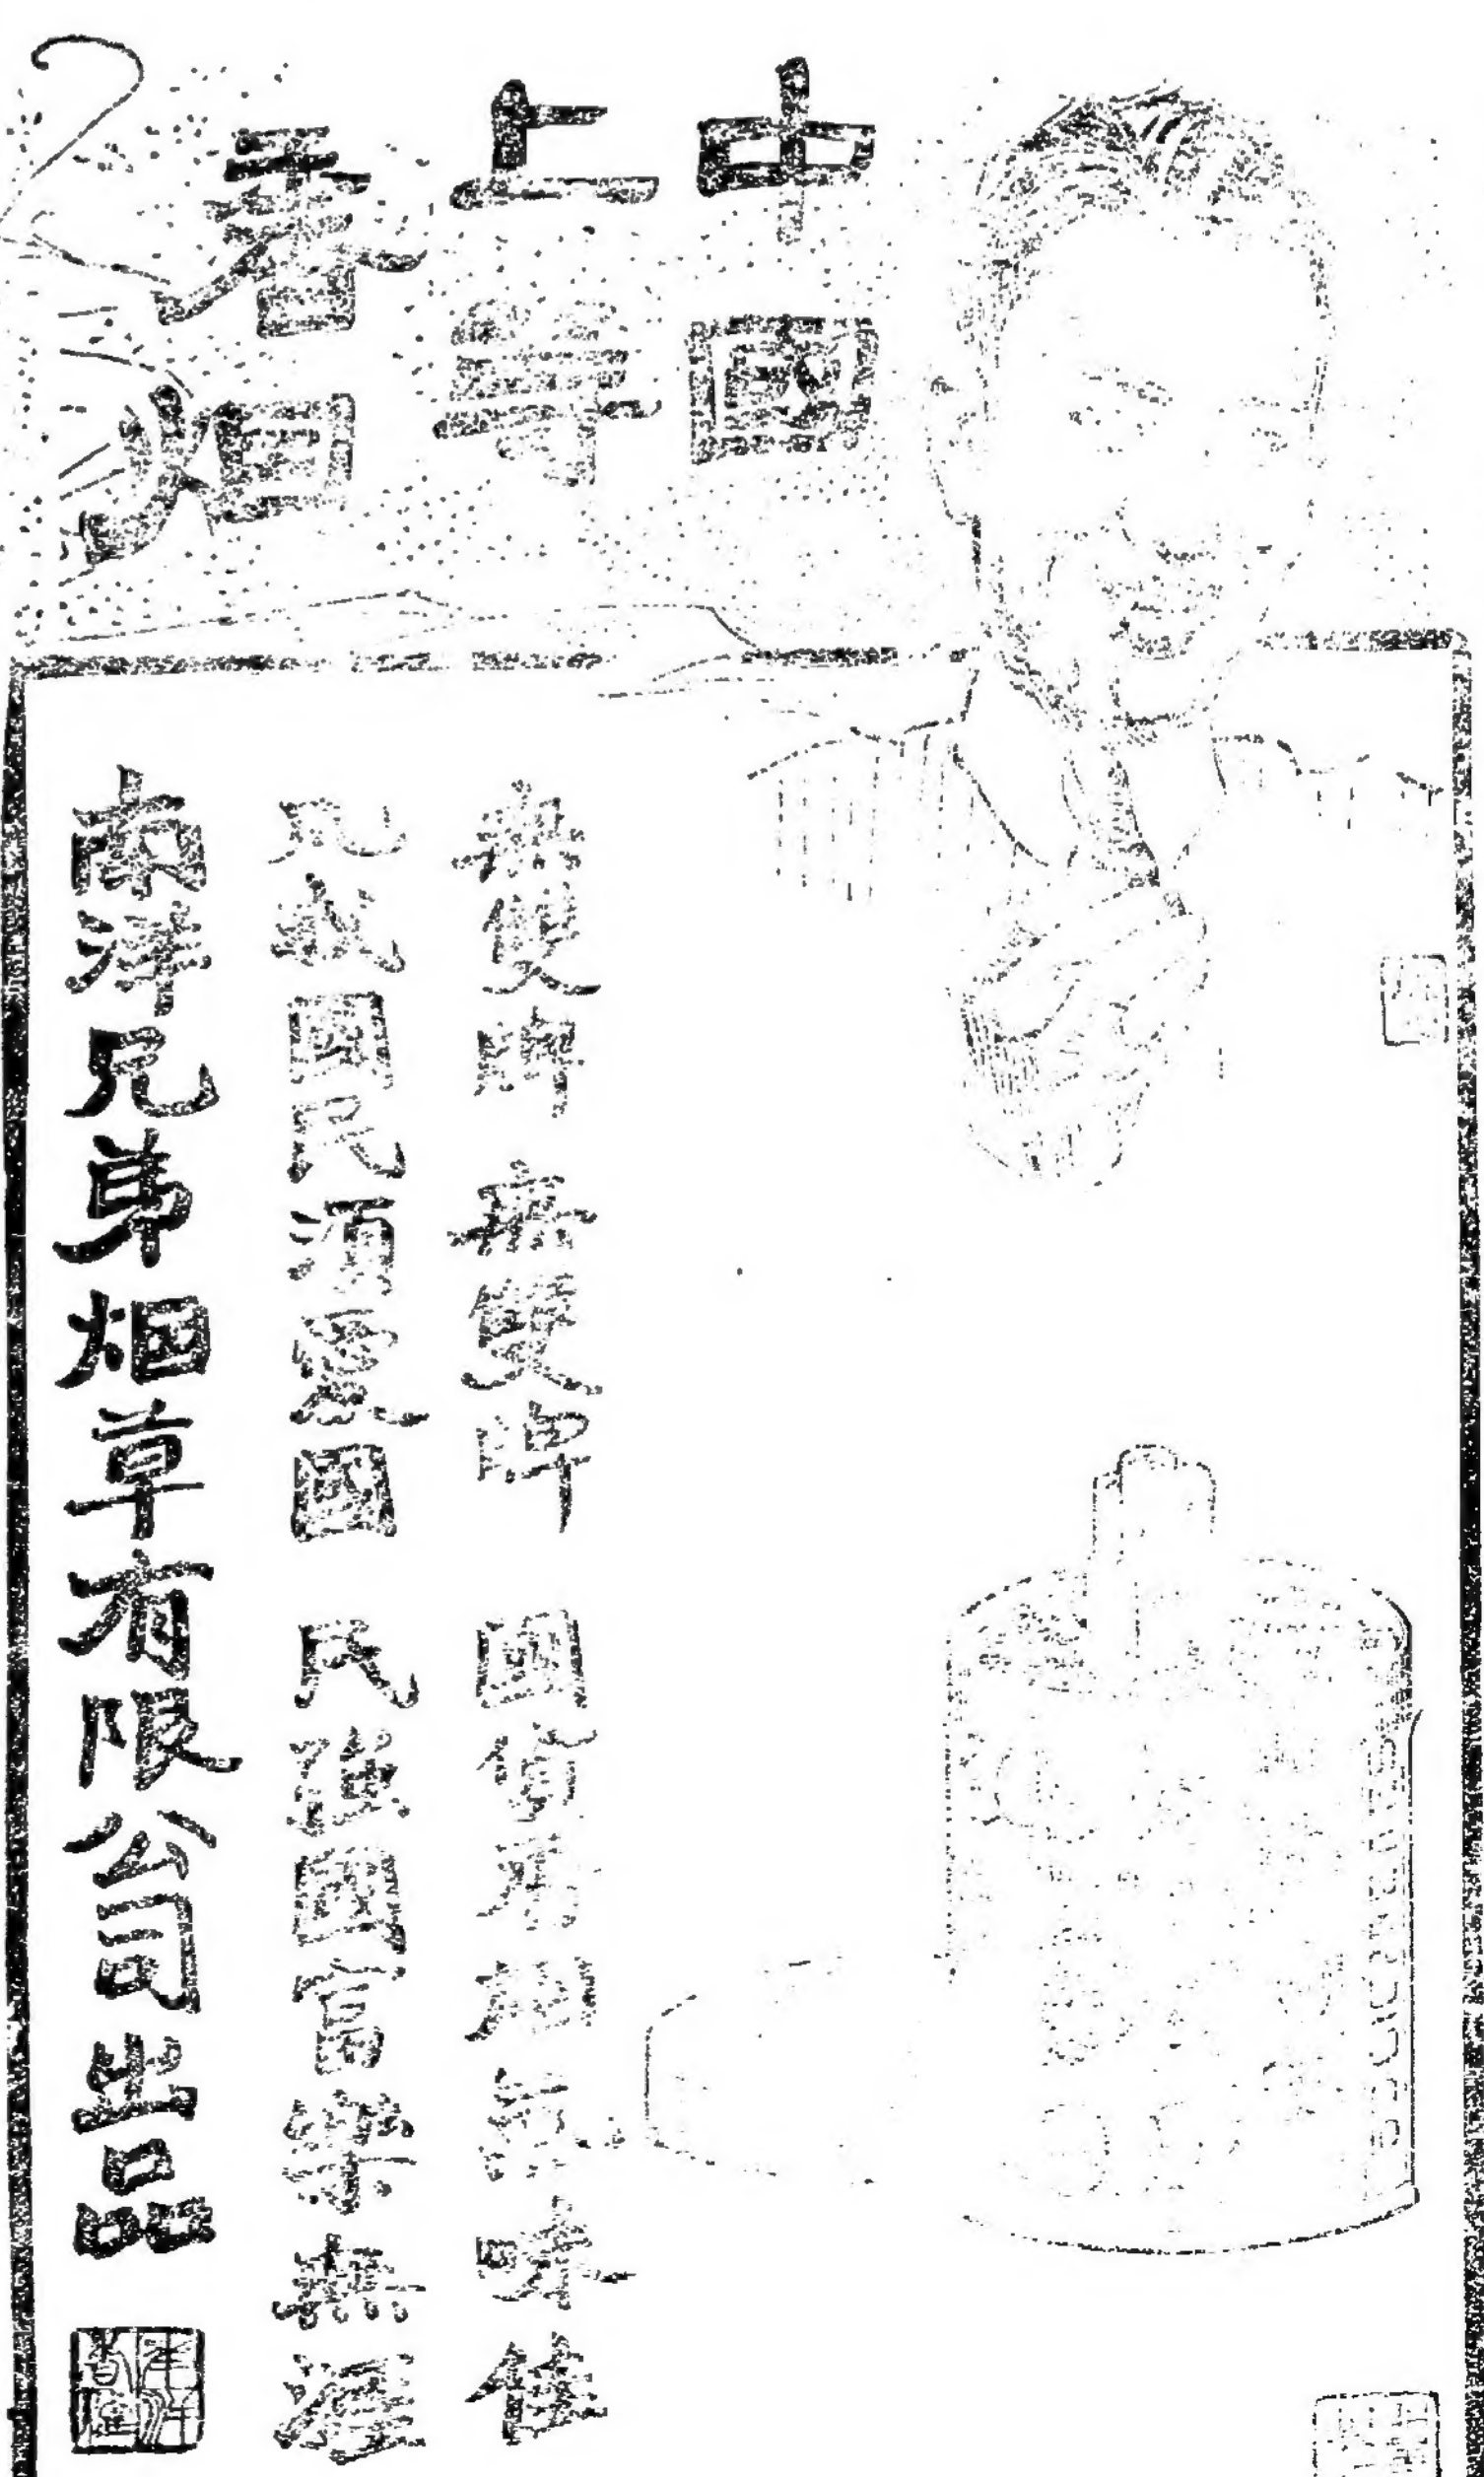 中國
上等
香烟
無雙牌 無雙牌 國貨香烟氣味佳
凡我國民須愛國 民強國富樂無涯
南洋兄弟烟草有限公司出品